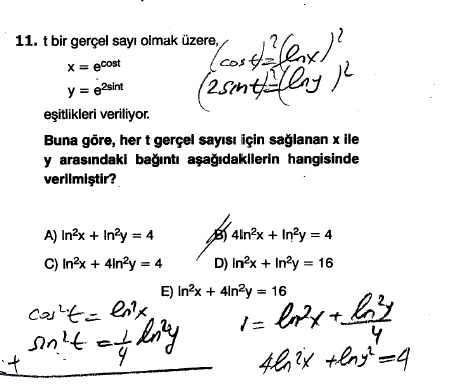 11. t bir gerçel sayı olmak üzere,
x = e^cost (cost)² = (lnx)²
y = e^2sint (2sint)² = (lny)²
eşitlikleri veriliyor.
Buna göre, her t gerçel sayısı için sağlanan x ile
y arasındaki bağıntı aşağıdakilerin hangisinde
verilmiştir?
A) ln²x + ln²y = 4 B) 4ln²x + ln²y = 4
C) ln²x + 4ln²y = 4 D) ln²x + ln²y = 16
E) ln²x + 4ln²y = 16
cos²t = ln²x
sin²t = 1/4 ln²y
+
1 = ln²x + ln²y/4
4ln²x + lny² = 4